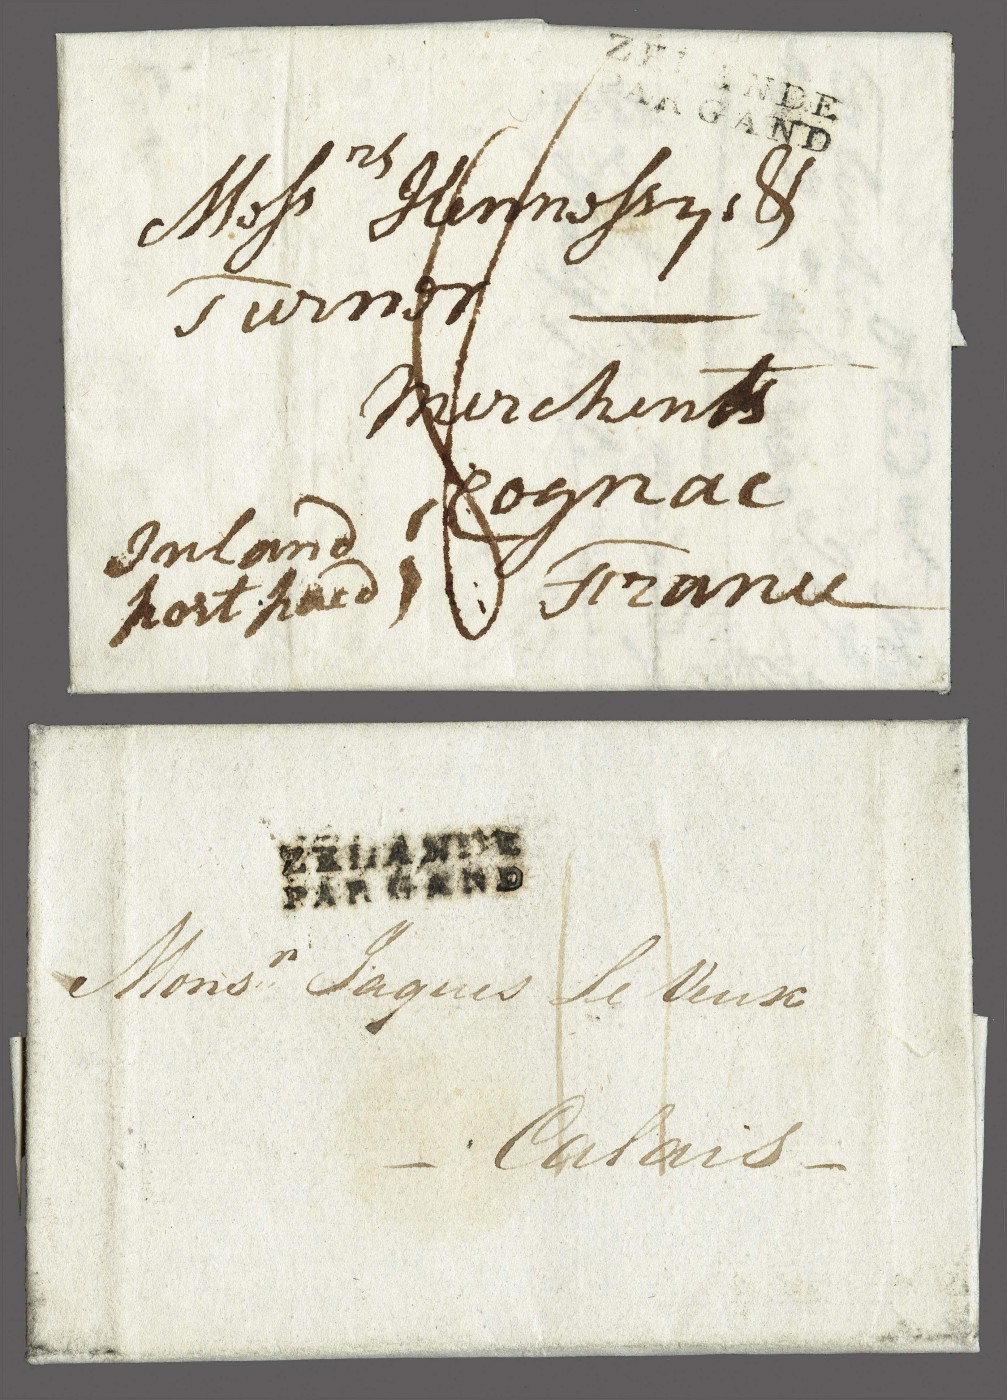 ZELANDE
PAR GAND
Messrs Hennessy, &
Turner
Merchents
Cognac
Inland
post paed
France
ZELANDE
PAR GAND
Monsn Jaques Le Veux
Calais